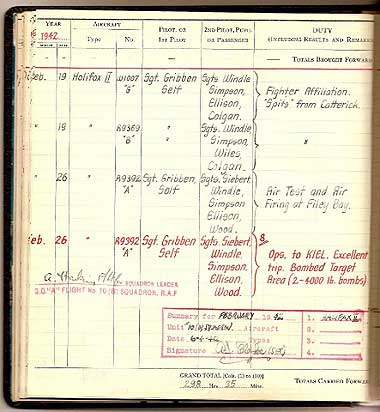 YEAR AIRCRAFT PILOT, OR 2ND PILOT, PUPIL DUTY
1942 Type No. 1ST PILOT OR PASSENGER (INCLUDING RESULTS AND REMARKS
— — — — — TOTALS BROUGHT FORWARD
Feb. 19 Halifax II W1007 Sgt. Gribben Sgts Windle,
"G" Self Simpson, Fighter Affiliation.
Ellison, "Spits" from Catterick.
Colgan.
" 19 " R9369 " Sgts. Windle,
"B" " Simpson, "
Wiles,
Colgan.
" 26 " R9392 Sgt. Gribben, Sgts. Siebert,
"A" Self Windle, Air Test and Air
Simpson Firing at Filey Bay.
Ellison,
Wood.
Feb. 26 " R9392 Sgt. Gribben Sgts. Siebert,
"A" Self Windle, Ops. to KIEL. Excellent
Simpson, trip. Bombed Target
SQUADRON LEADER Ellison, Area (2-4000 lb. bombs)
O.C. "A" FLIGHT No 10 (B) SQUADRON, R.A.F Wood.
Summary for FEBRUARY 1942 1. HALIFAX II
Unit 10(B) SQADN. Aircraft 2.
Date Types 3.
Signature 4.
GRAND TOTAL [Cols. (1) to (10)]
298 Hrs. 35 Mins. TOTALS CARRIED FORWARD